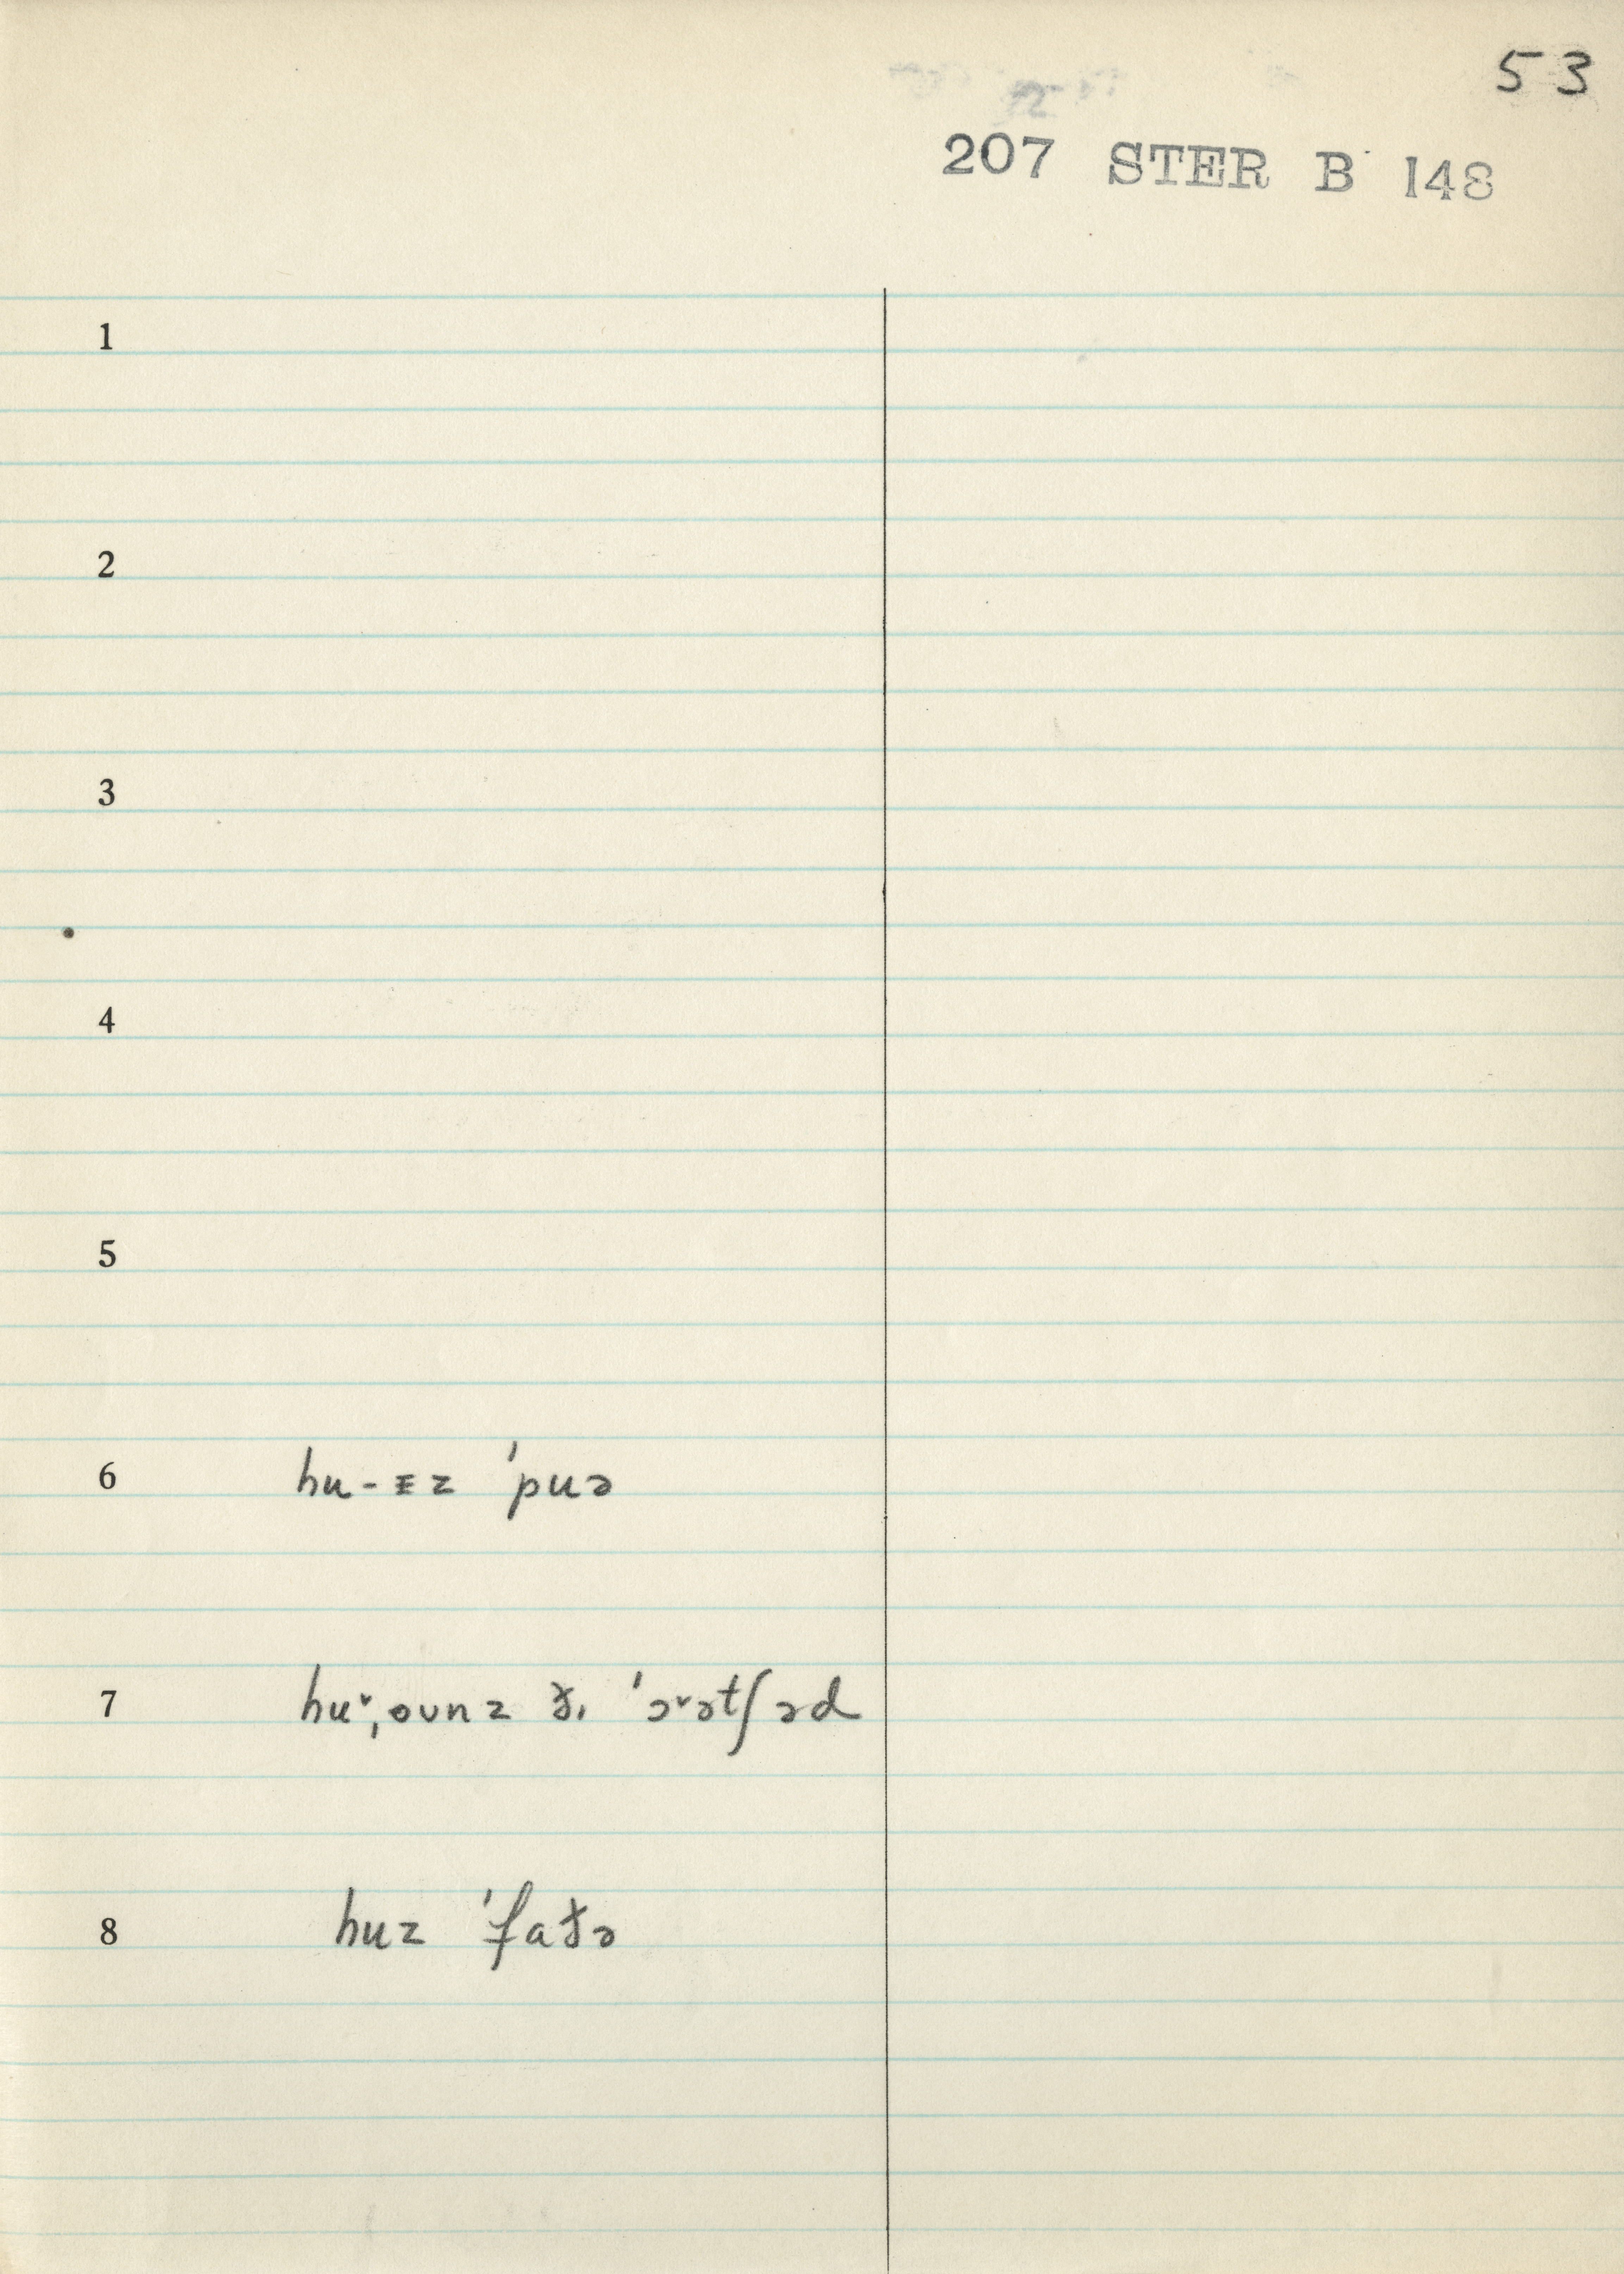 53
207 STER B 148
1
2
3
4
5
6 hu-ɪz 'puə
7 huᵛ,oʊnz ðɩ 'ɔᵛətʃəd
8 huz 'faðə